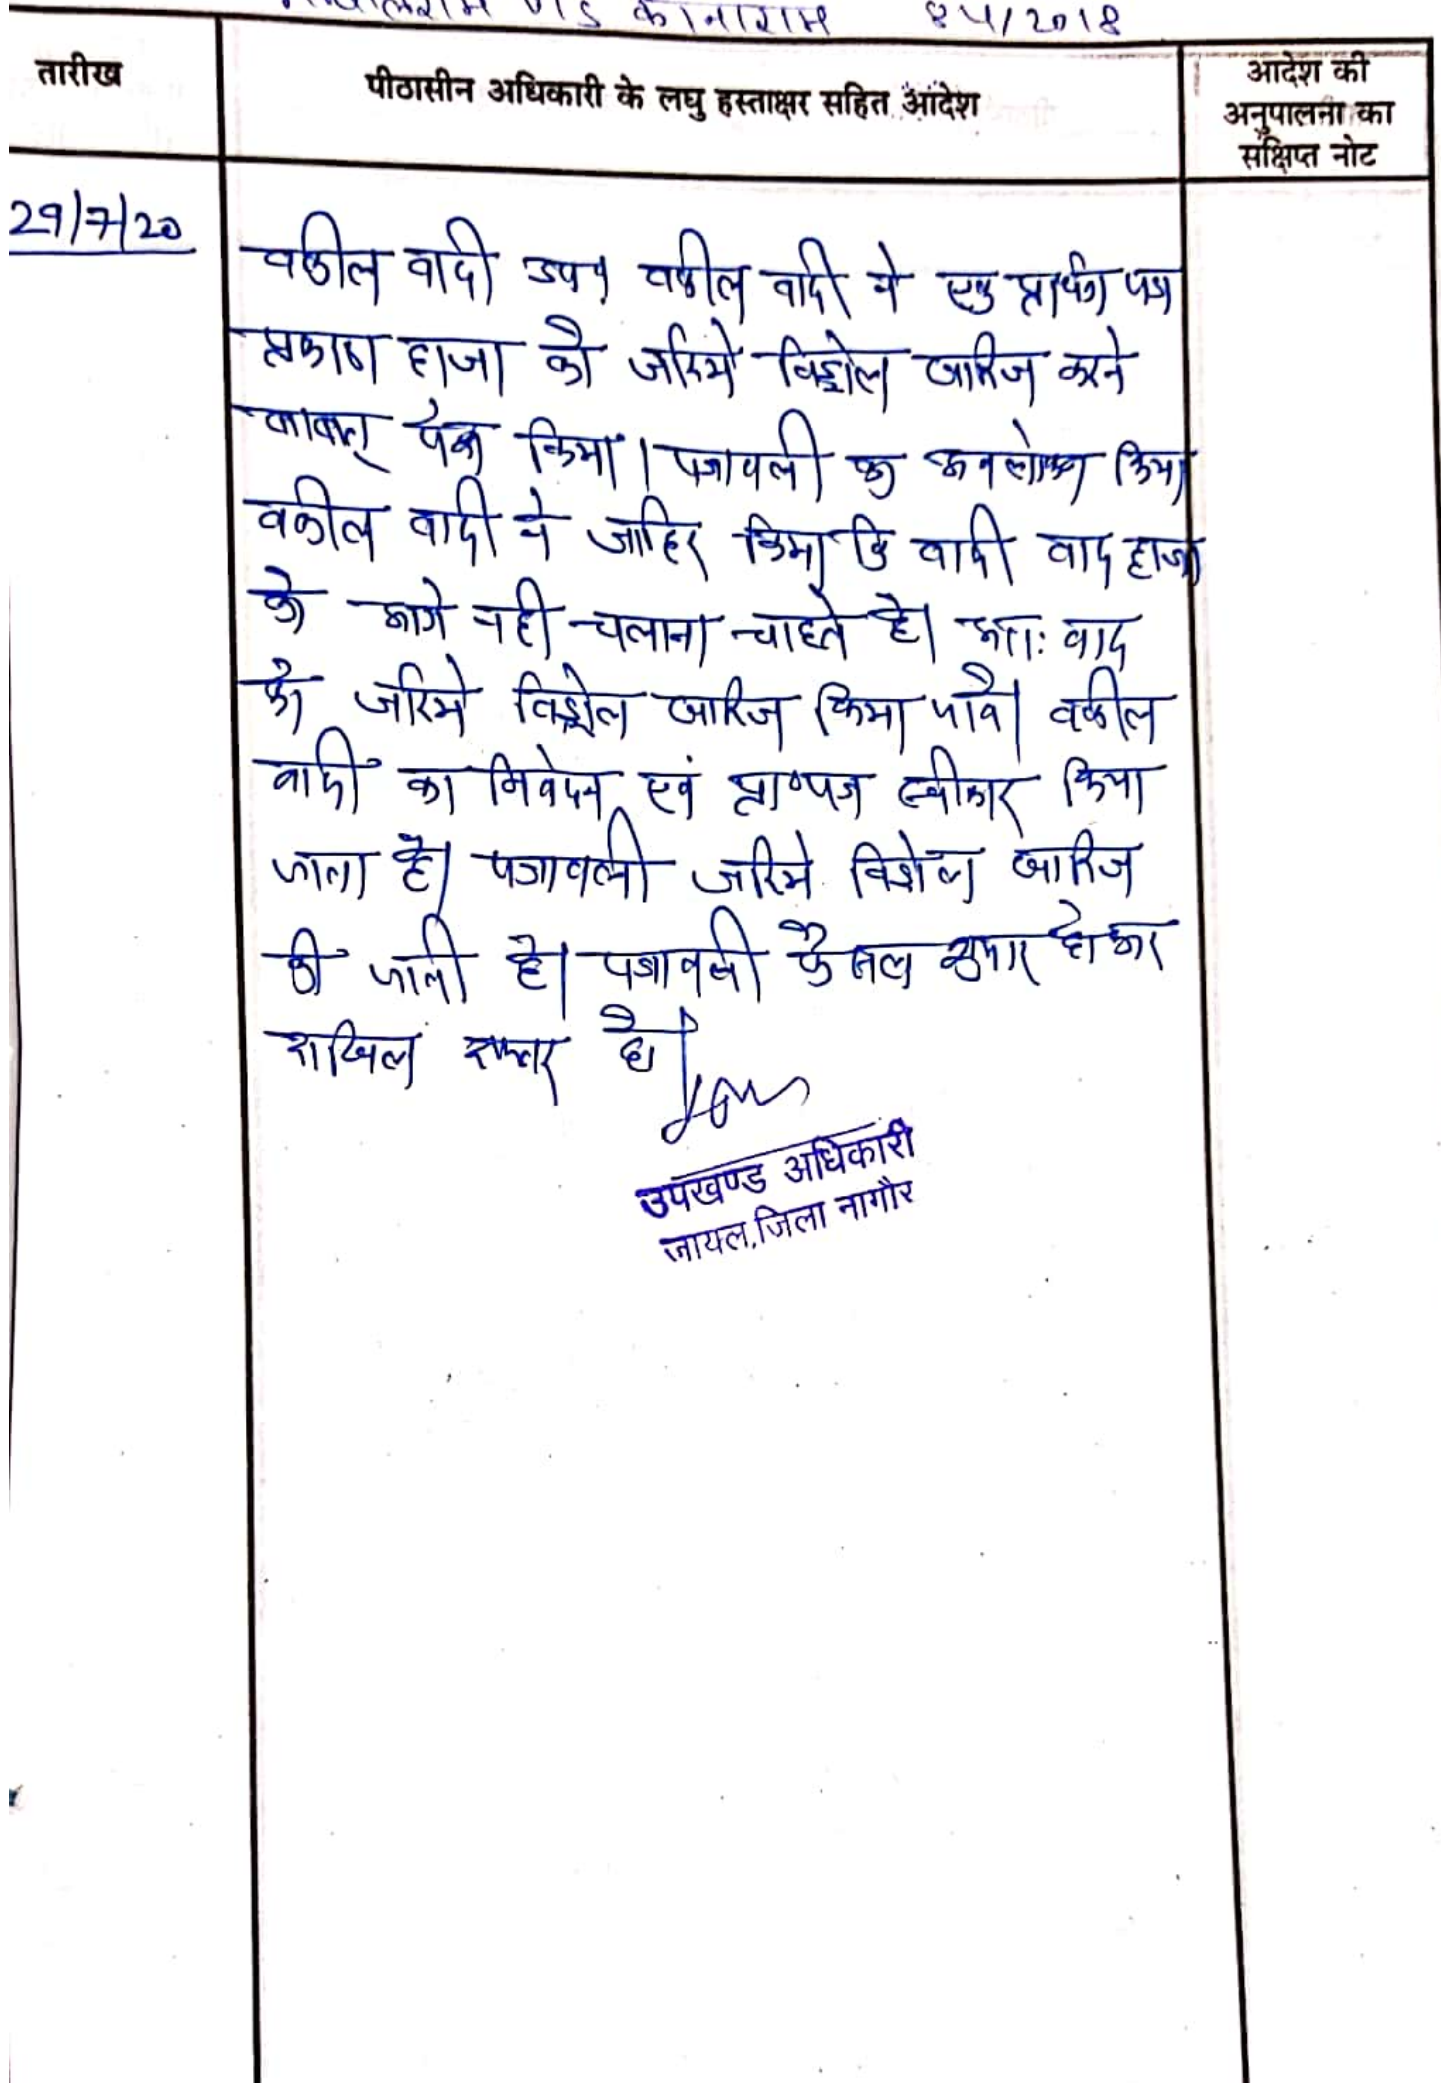 कानाराम
तारीख
पीठासीन अधिकारी के लघु हस्ताक्षर सहित आदेश
आदेश की
अनुपालना का
संक्षिप्त नोट
29/7/20
वकील वादी उप० वकील वादी ने एक प्रार्थना पत्र
प्रकरण हाजा को जरिये विड्रोल खारिज करने
बाबत् पेश किया। पत्रावली का अवलोकन किया
वकील वादी ने जाहिर किया कि वादी वाद हाजा
को आगे नही चलाना चाहते है। अतः वाद
को जरिये विड्रोल खारिज किया जावे। वकील
वादी का निवेदन एवं प्रा०पत्र स्वीकार किया
जाता है। पत्रावली जरिये विड्रोल खारिज
की जाती है। पत्रावली फैसल शुमार होकर
दाखिल दफ्तर हो।
उपखण्ड अधिकारी
जायल, जिला नागौर